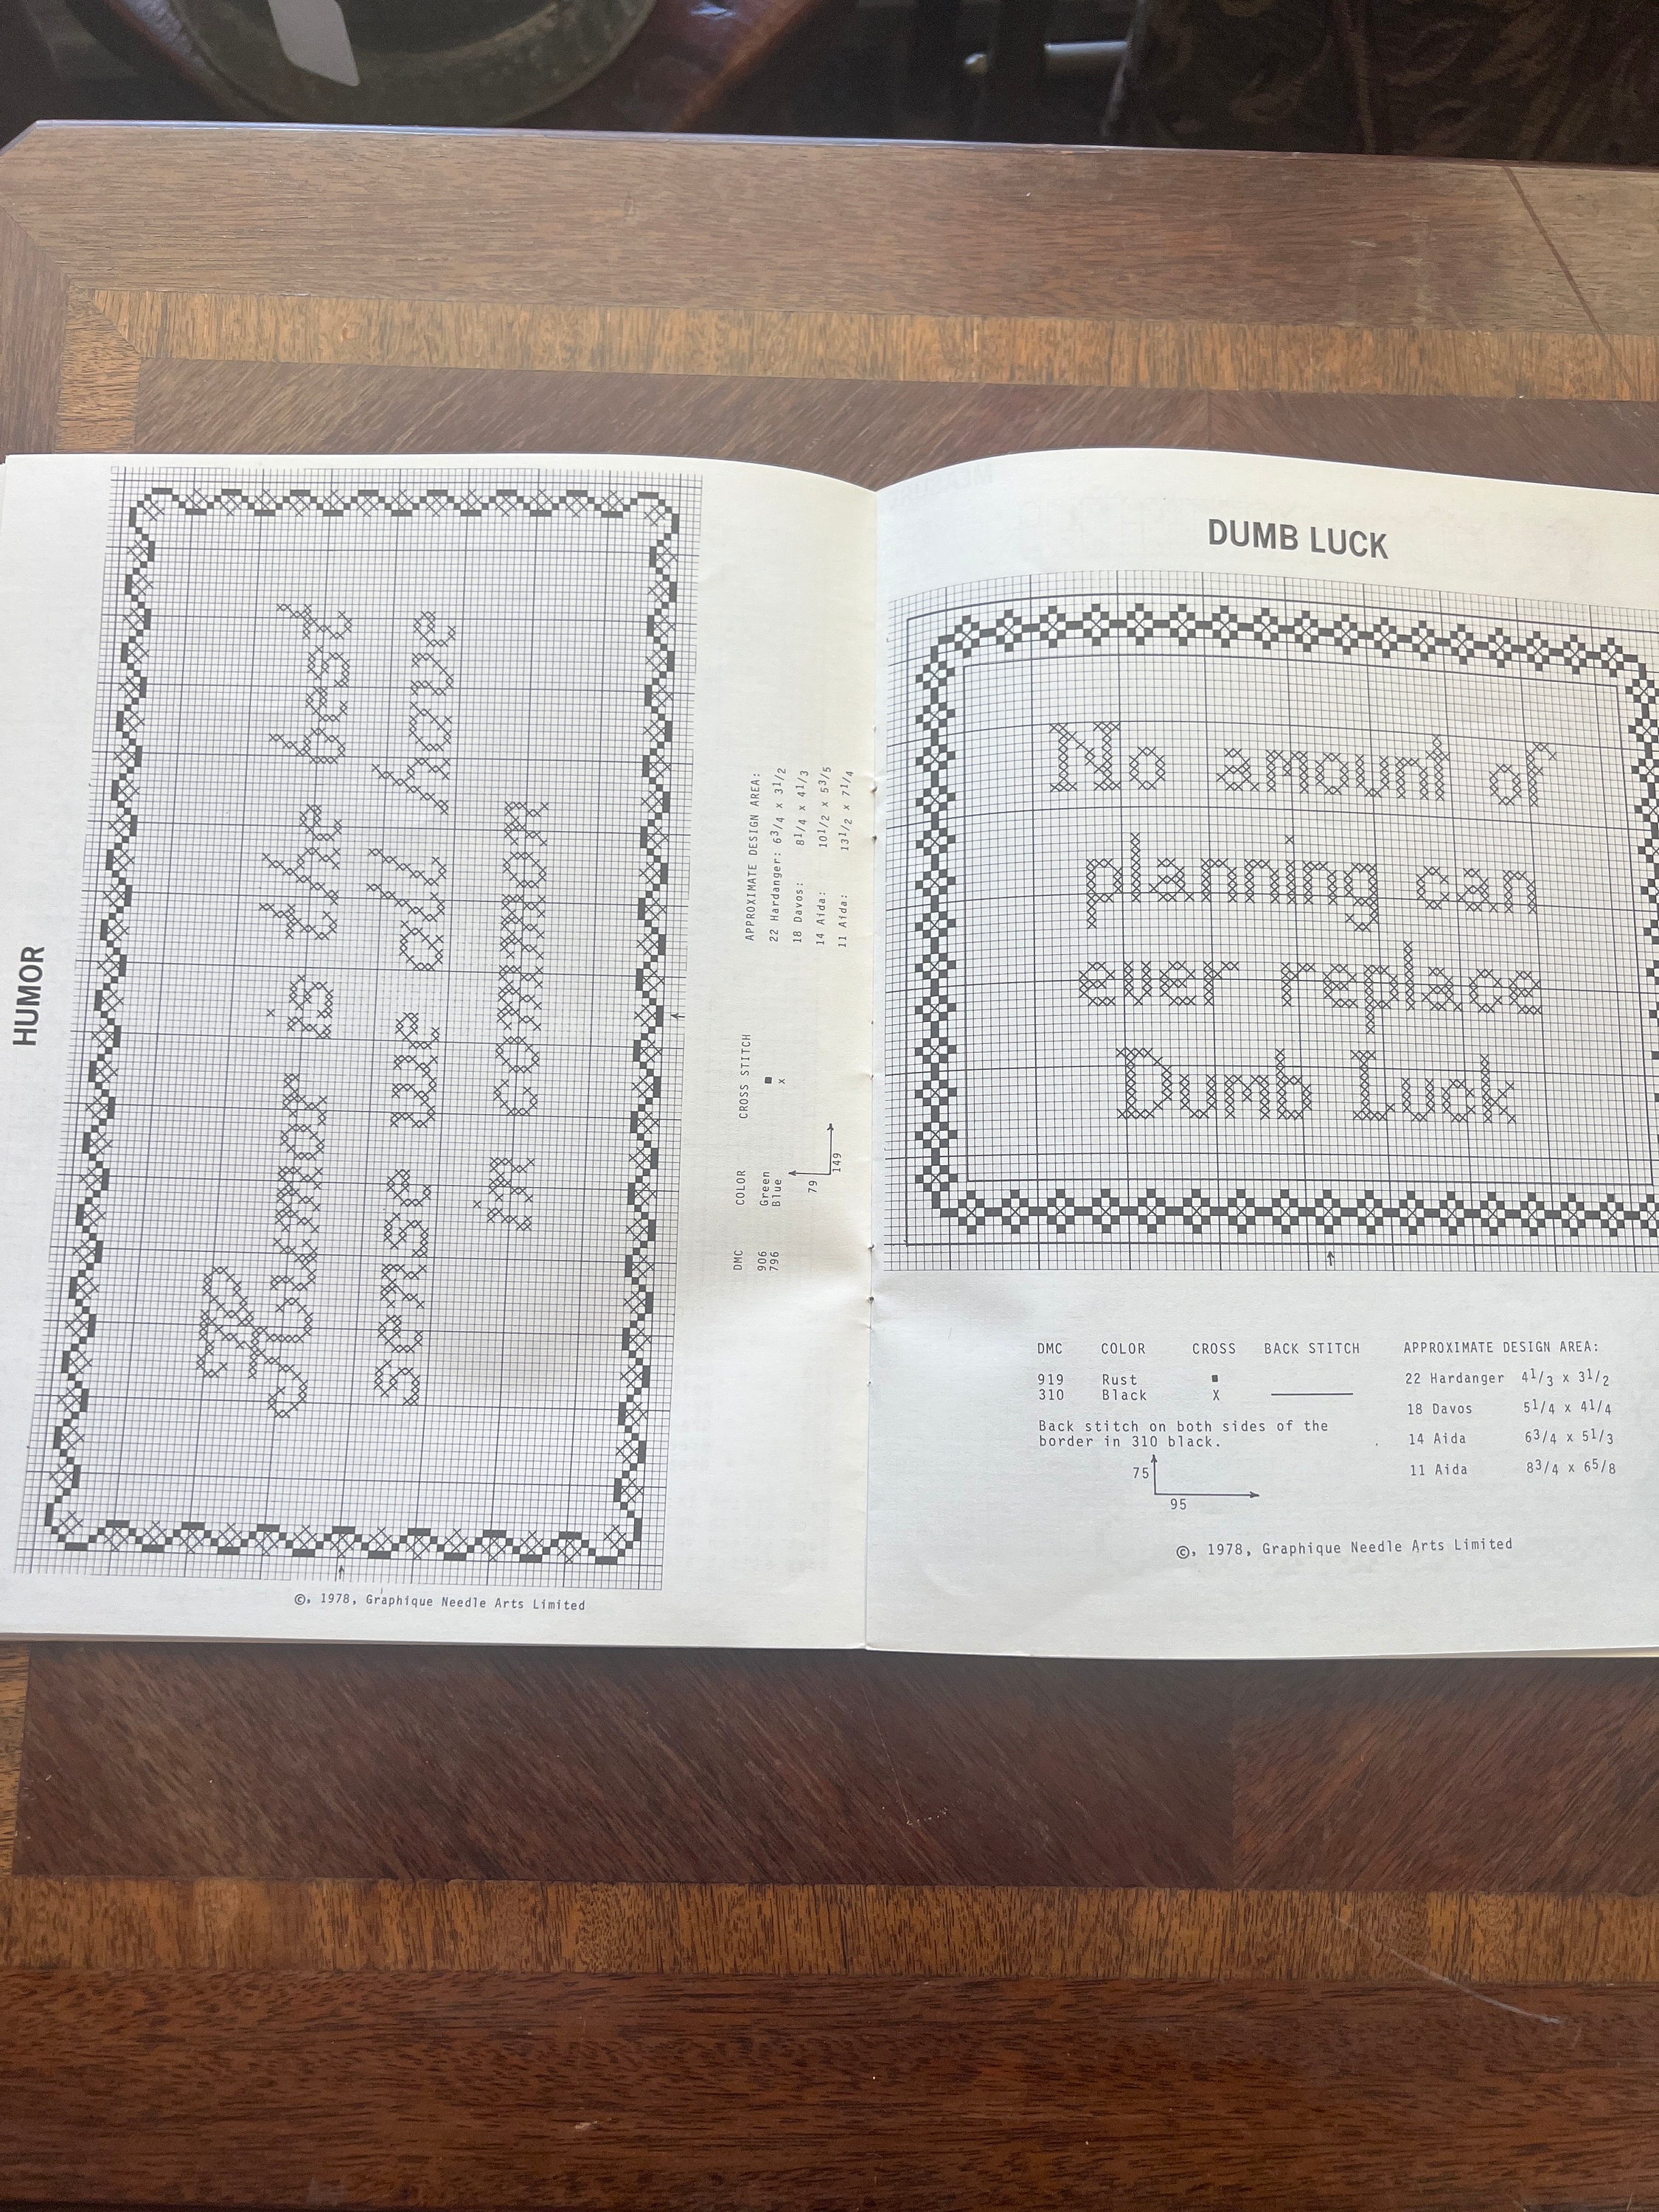 HUMOR
Humor is the best
sense we all have
in common
DMC COLOR CROSS STITCH
906 Green ■
796 Blue x
79
149
APPROXIMATE DESIGN AREA:
22 Hardanger: 6 3/4 x 3 1/2
18 Davos: 8 1/4 x 4 1/3
14 Aida: 10 1/2 x 5 3/5
11 Aida: 13 1/2 x 7 1/4
©, 1978, Graphique Needle Arts Limited
DUMB LUCK
No amount of
planning can
ever replace
Dumb Luck
DMC COLOR CROSS BACK STITCH
919 Rust ■
310 Black X
Back stitch on both sides of the
border in 310 black.
75
95
APPROXIMATE DESIGN AREA:
22 Hardanger 4 1/3 x 3 1/2
18 Davos 5 1/4 x 4 1/4
14 Aida 6 3/4 x 5 1/3
11 Aida 8 3/4 x 6 5/8
©, 1978, Graphique Needle Arts Limited